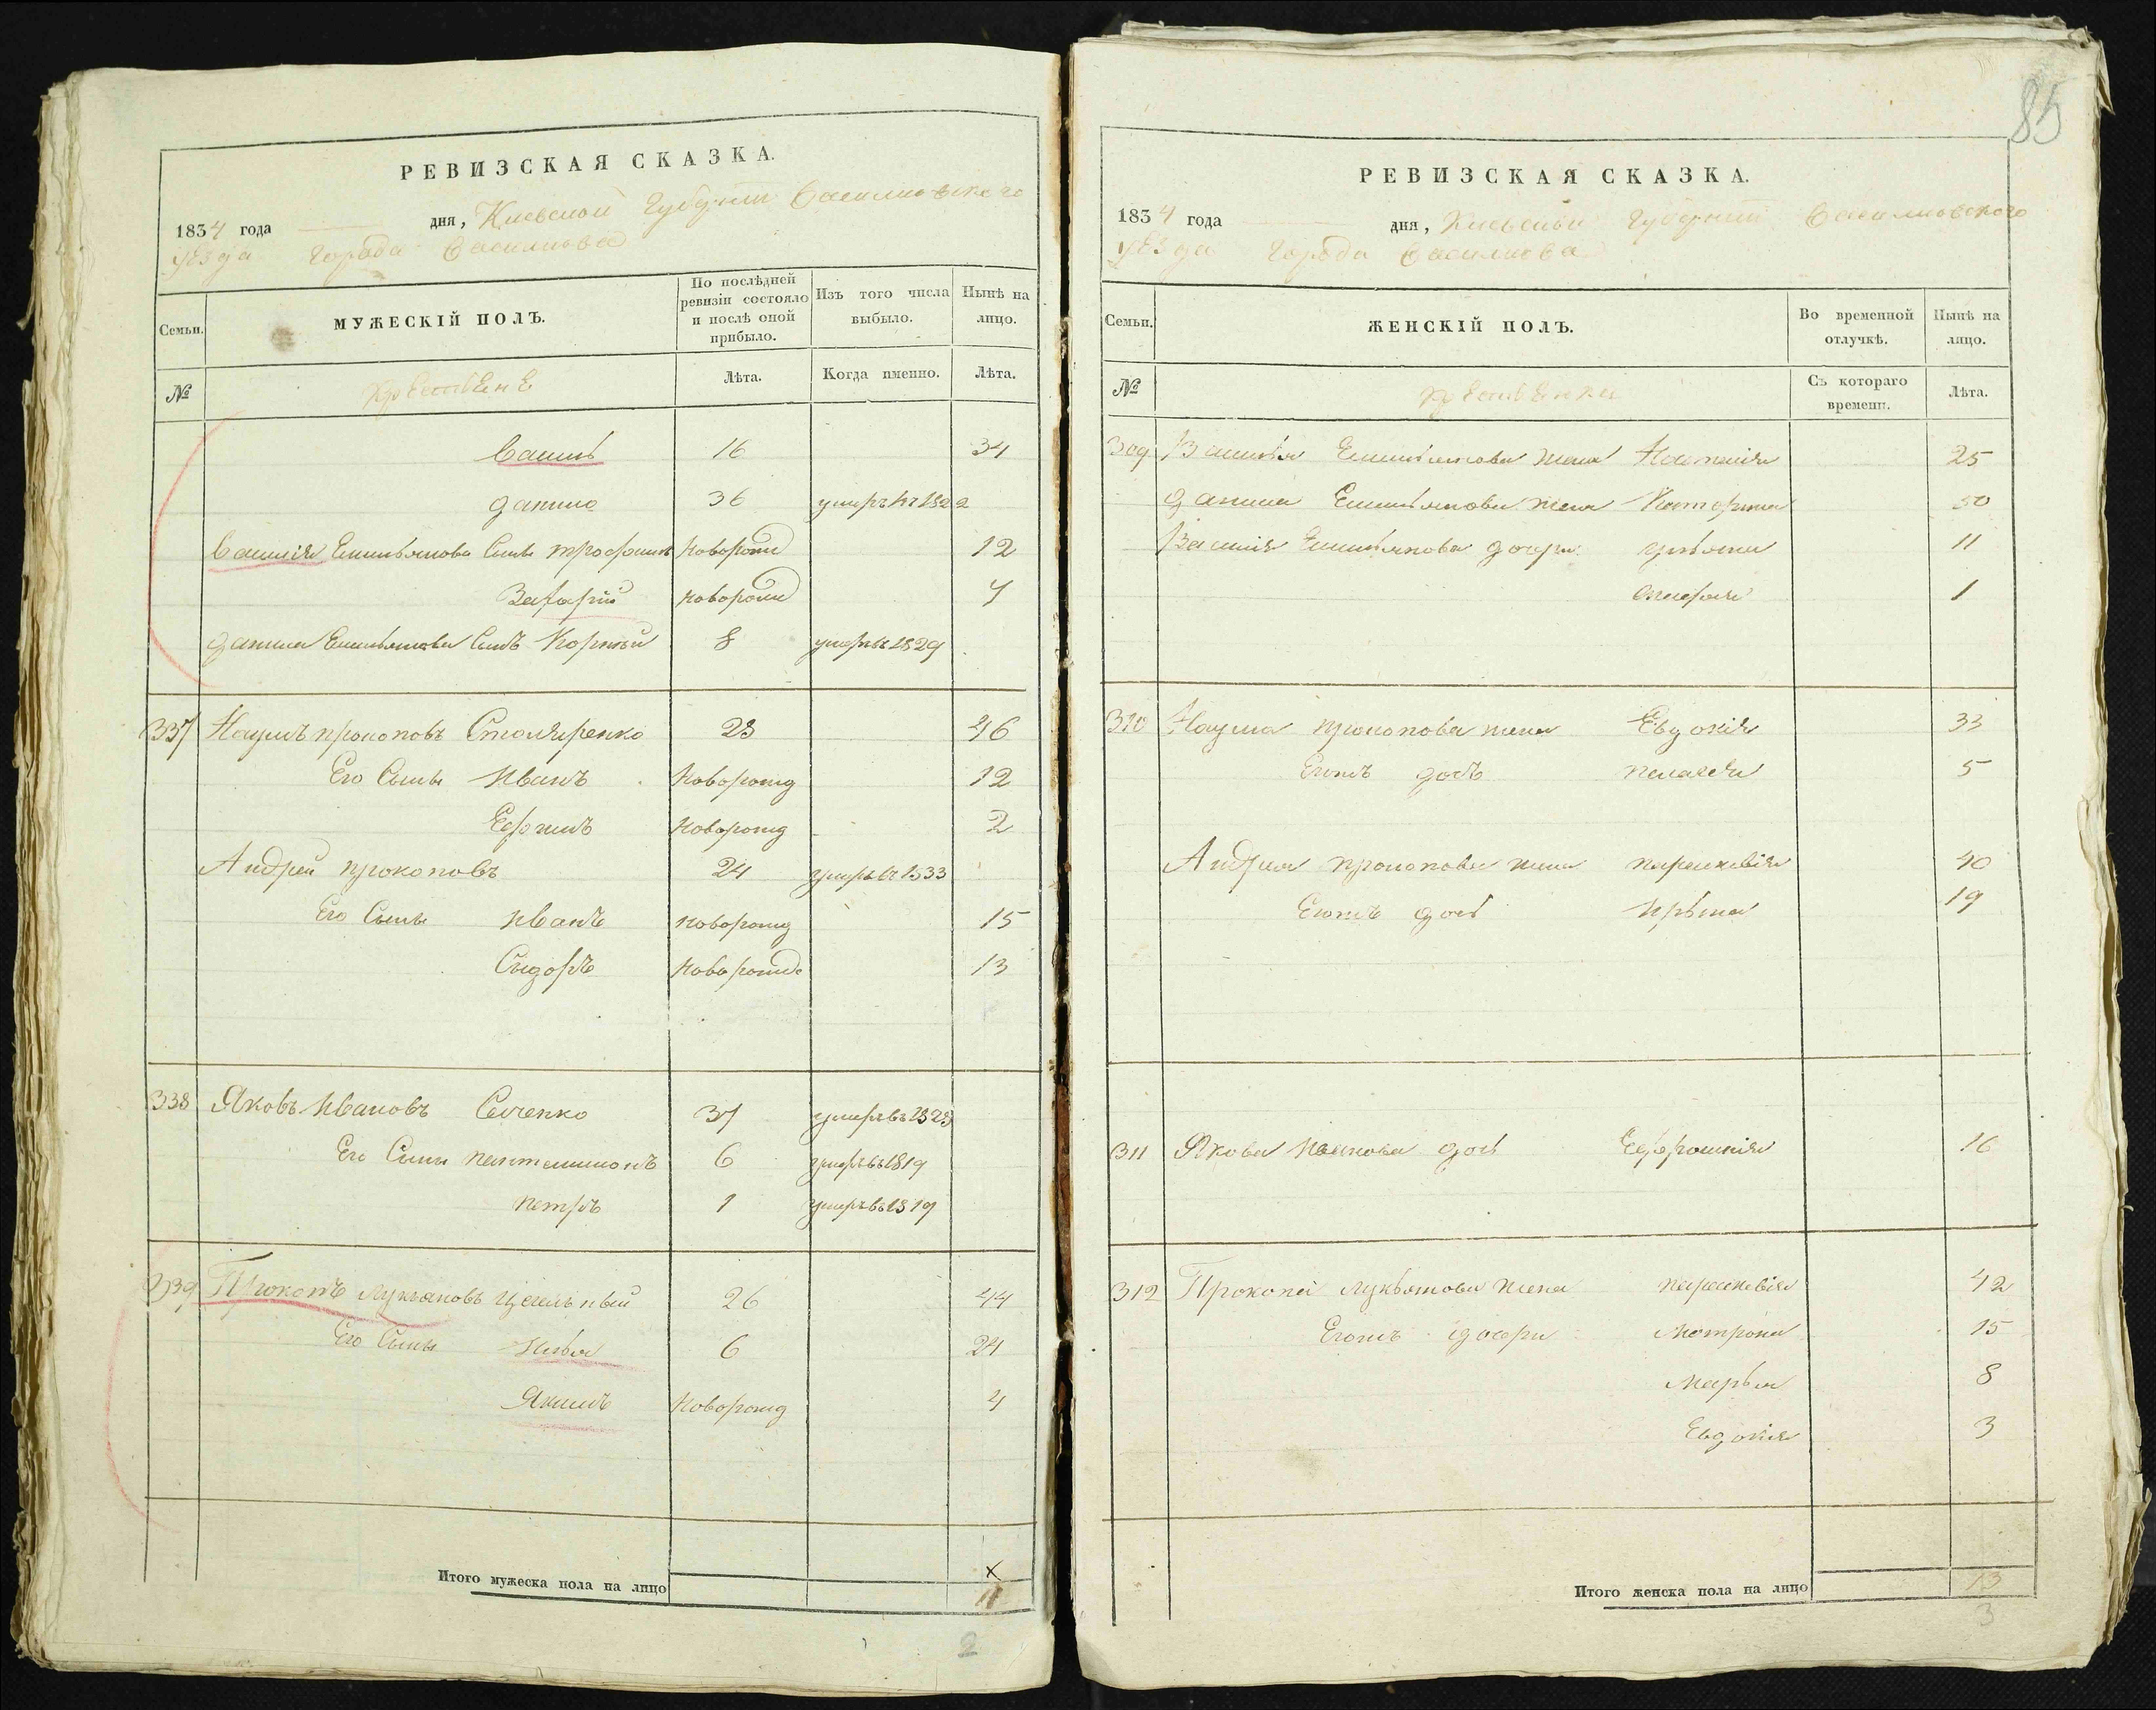 РЕВИЗСКАЯ СКАЗКА.
1834 года дня, Киевской Губернии Васильковского
уѣзда города Василькова
Семьи.
МУЖЕСКІЙ ПОЛЪ.
По послѣдней ревизіи состояло и послѣ оной прибыло.
Изъ того числа выбыло.
Нынѣ на лицо.
№
Лѣта.
Когда именно.
Лѣта.
Василь 16 34
Данило 36 умеръ 1822
Василія Емельянова Сынъ Трофимъ новорожд 12
Захарій новорожд
Данила Емельянова Сынъ Корній 8 умеръ 1829
337 Наумъ Прокоповъ Столяренко 28 46
Его Сыны Иванъ новорожд 12
Ефимъ новорожд 2
Андрей Прокоповъ 24 умеръ въ 1833
Его Сыны Иванъ новорожд 15
Сидоръ новорожд 13
338 Яковъ Ивановъ 37 умеръ въ
Его Сыны Пантелимонъ 6 умеръ въ 1819
Петръ 1 умеръ въ 1819
339 Прокопъ Лукьяновъ Цегельный 26 44
Его Сыны Илья 6 24
Якимъ новорожд 4
Итого мужеска пола на лицо 11
2
85
РЕВИЗСКАЯ СКАЗКА.
1834 года дня, Киевской Губерніи Васильковского
уѣзда города Василькова
Семьи.
ЖЕНСКІЙ ПОЛЪ.
Во временной отлучкѣ.
Нынѣ на лицо.
№
Съ котораго времени.
Лѣта.
309 Василя Емельянова жена Настасія 25
Данила Емельянова жена Катерина 50
Василія Емельянова дочери Ульяна 11
1
310 Наума Прокопова жена Евдокія 33
Егожъ дочь Пелагея 5
Андрея Прокопова жена Параскевія 40
Егожъ дочь Ирына 19
311 Якова Иванова дочь Ефросинія 16
312 Прокопа Лукьянова жена Параскевія 42
Егожъ дочери Мотрона 15
Марья 8
Евдокія 3
Итого женска пола на лицо 13
3